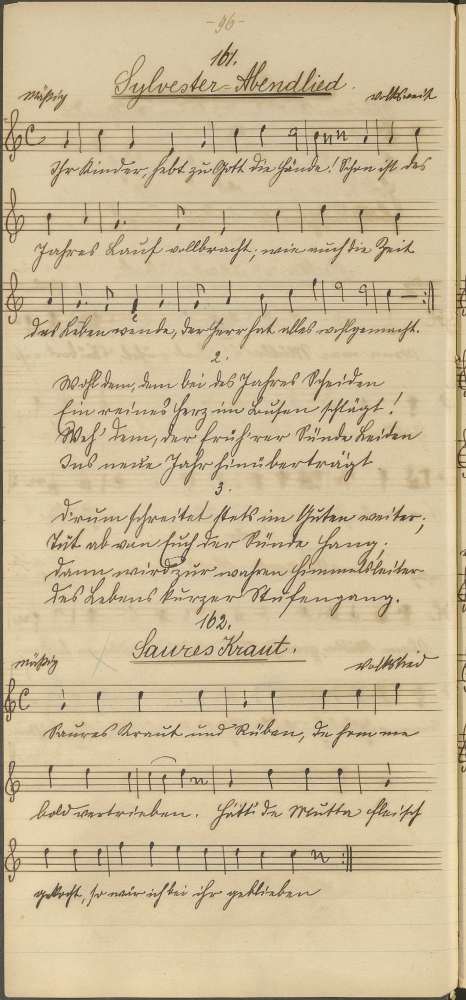 -96-
161.
Sylvester-Abendlied.
Mäßig Volksweise
Ihr Kinder, hebt zu Gott die Hände! Schon ist des
Jahres Lauf vollbracht; wie auch die Zeit
das Leben wende, der Herr hat alles wohlgemacht.
2.
Wohl dem, dem bei des Jahres Scheiden
Ein reines Herz im Busen schlägt!
Weh' dem, der früh'rer Sünde Leiden
Ins neue Jahr hinüberträgt
3.
Drum schreitet stets im Guten weiter;
Tut ab von Euch der Sünde Hang;
Dann wird zur wahren Himmelsleiter
Des Lebens kurzer Stufengang.
162.
Saures Kraut.
Mäßig Volkslied
Saures Kraut und Rüben, de hom me
bald vertrieben. Hätt' de Mutta Fleisch
gekocht, so wär ich bei ihr geblieben